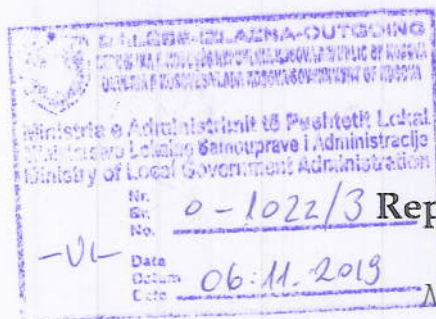 DALËSE-IZLAZNA-OUTGOING
Ministria e Administrimit të Pushtetit Lokal
Ministarstvo Lokalne Samouprave i Administracije
Ministry of Local Government Administration
Nr.
Br.
No.
0-1022/3
Rep
-01-
Data
Datum
Date
06.11.2019